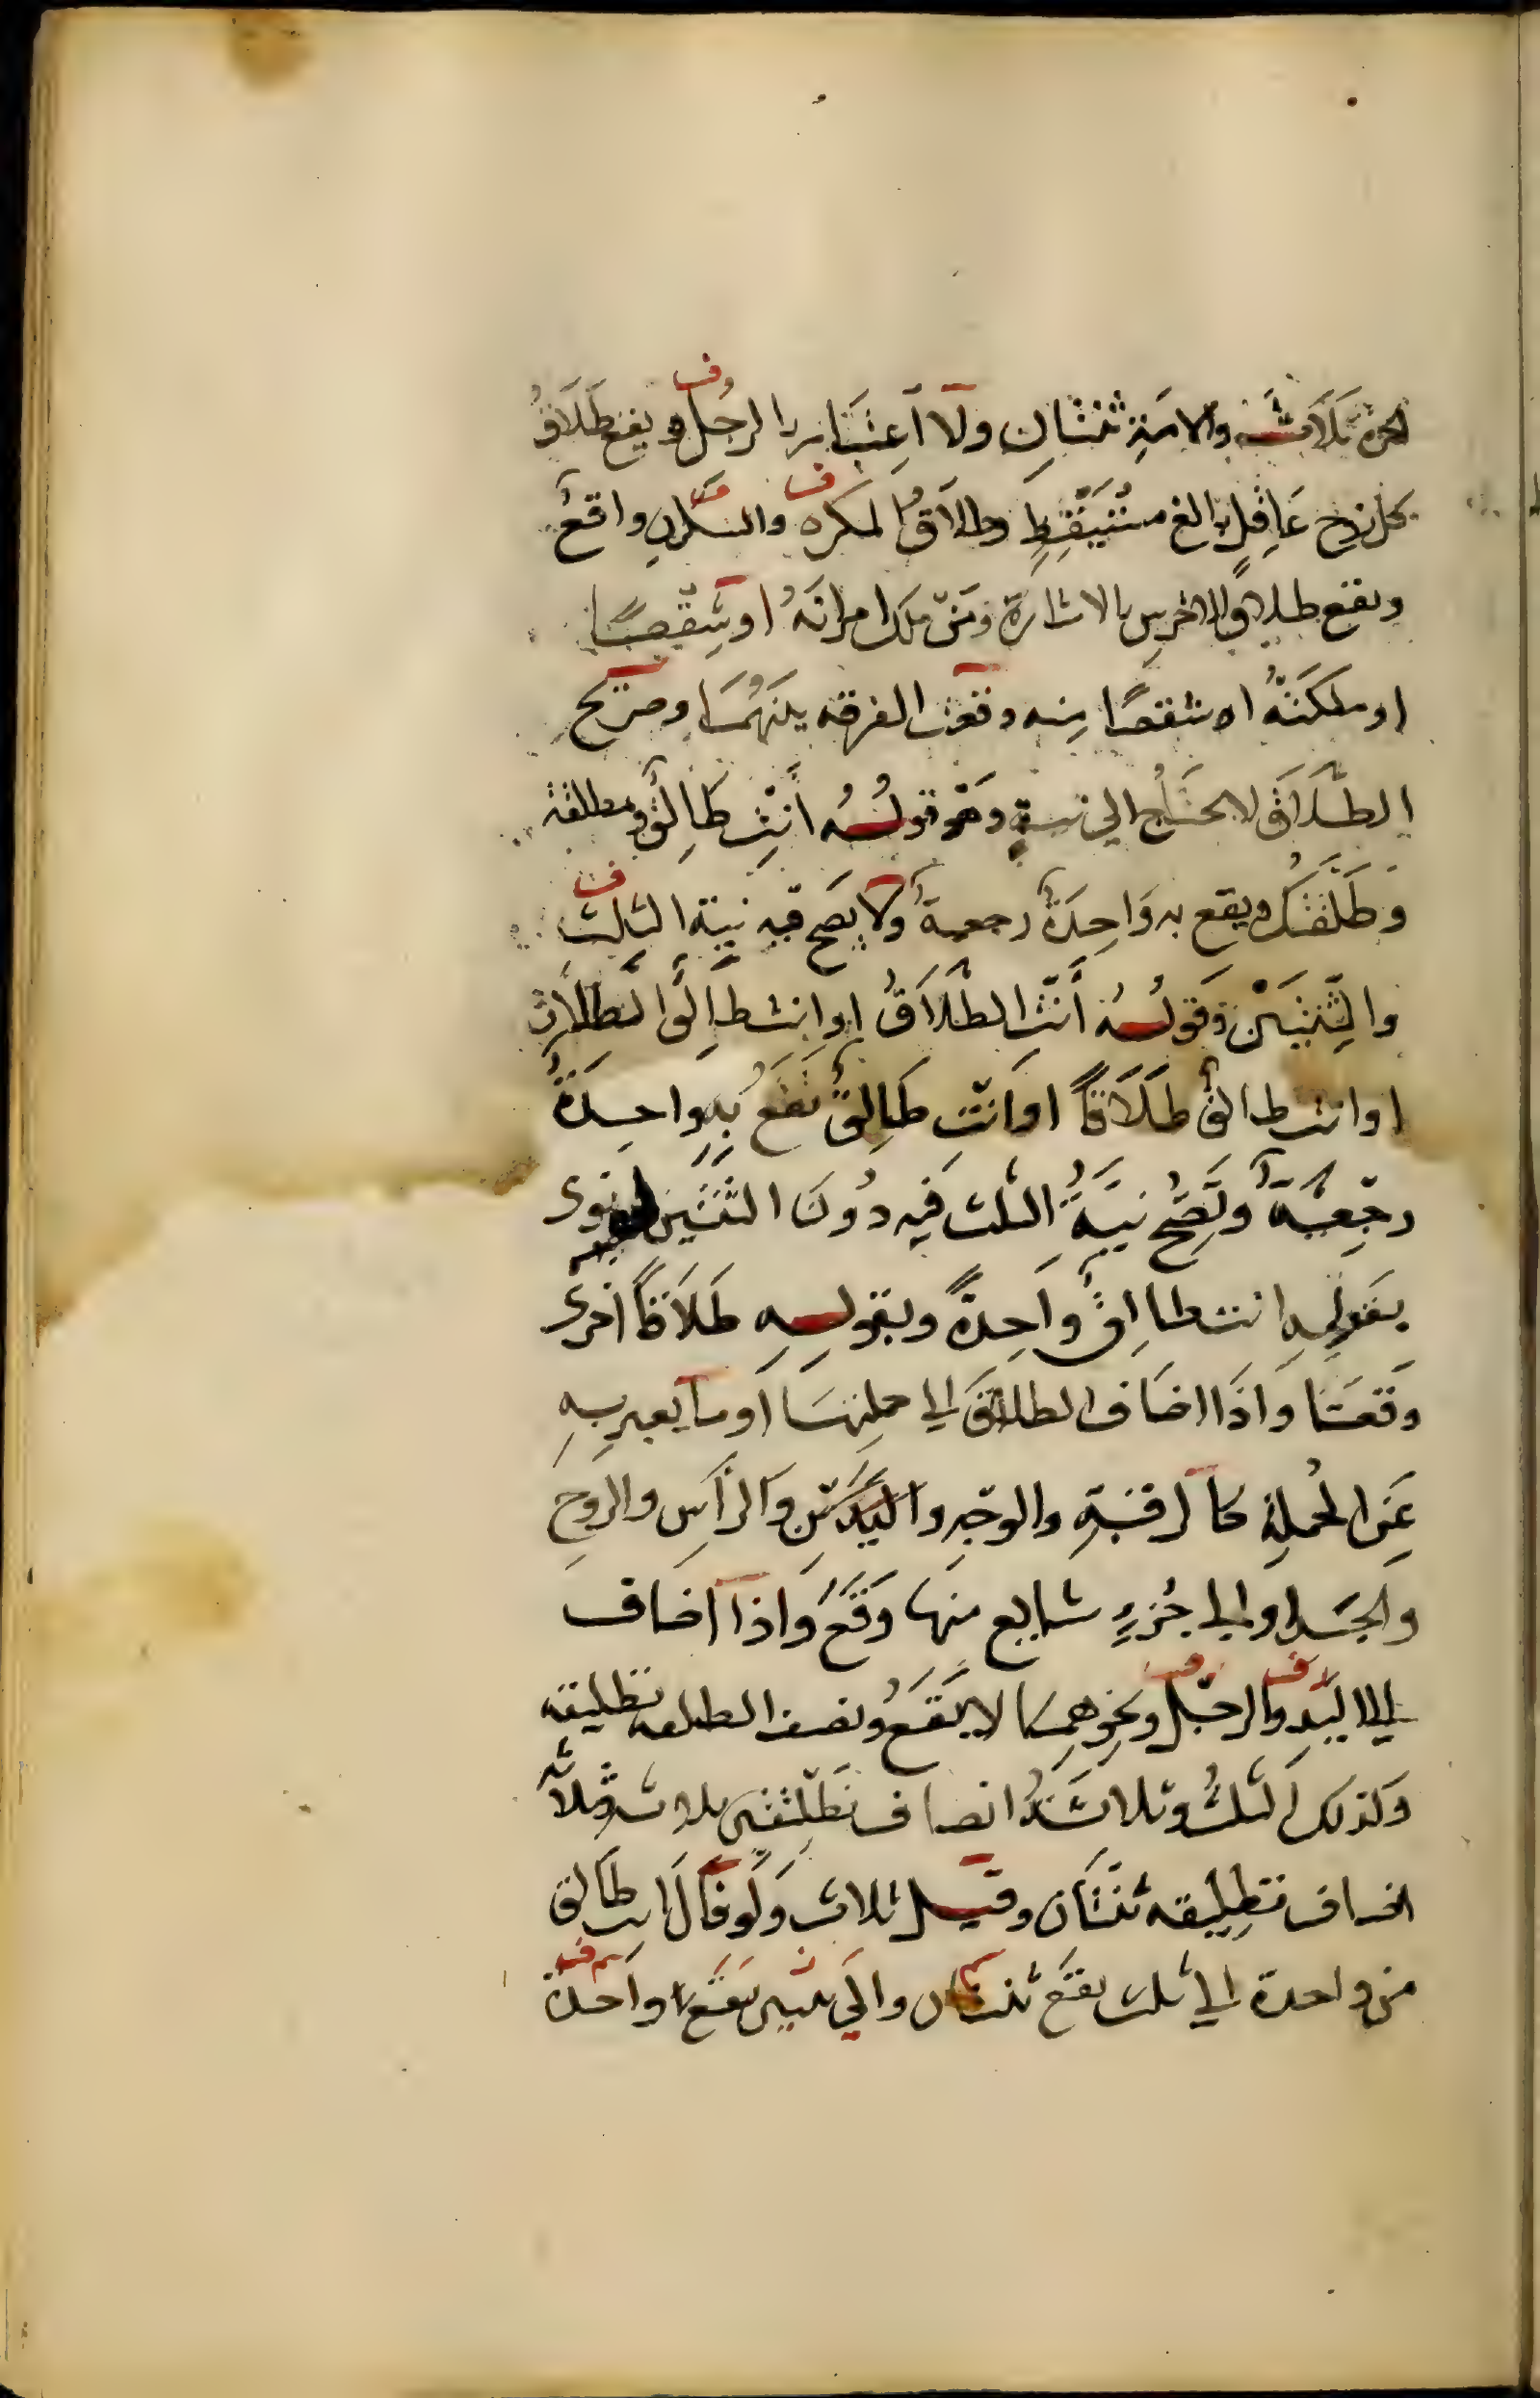 الحرة ثلاث والامة ثنتان ولا اعتبار بالرجل ويقع طلاق
كل زوج عاقل بالغ مستيقظ وطلاق المكره والسكران واقع
ويقع طلاق الاخرس بالاشارة ومن ملك امراته او شقصا
او ملكته او شقصا منه وقعت الفرقه بينهما وصريح
الطلاق لا يحتاج الى نية وهو قوله انت طالق ومطلقة
وطلقتك ويقع به واحدة رجعية ولا يصح فيه نية الثلث
والثنتين وقوله انت الطلاق او انت طالق الطلاق
او انت طالق طلاقا او انت طالق تقع به واحدة
رجعية وتصح نية الثلث فيه دون الثنتين ولو نوى
بقوله انت طالق واحدة وبقوله طلاقا اخرى
وقعتا واذا اضاف الطلاق الى جملتها او ما يعبر به
عن الجملة كالرقبة والوجه واليدين والراس والروح
والجسد او الى جزء شايع منها وقع واذا اضاف
الى اليد والرجل ونحوهما لا يقع ونصف الطلقه تطليقه
وكذلك الثلث وثلاثة انصاف تطليقتين ثلاث وثلاثة
انصاف تطليقه ثنتان وقيل ثلاث ولو قال انت طالق
من واحدة الى ثلث يقع ثنتان والى ثنتين يقع واحدة